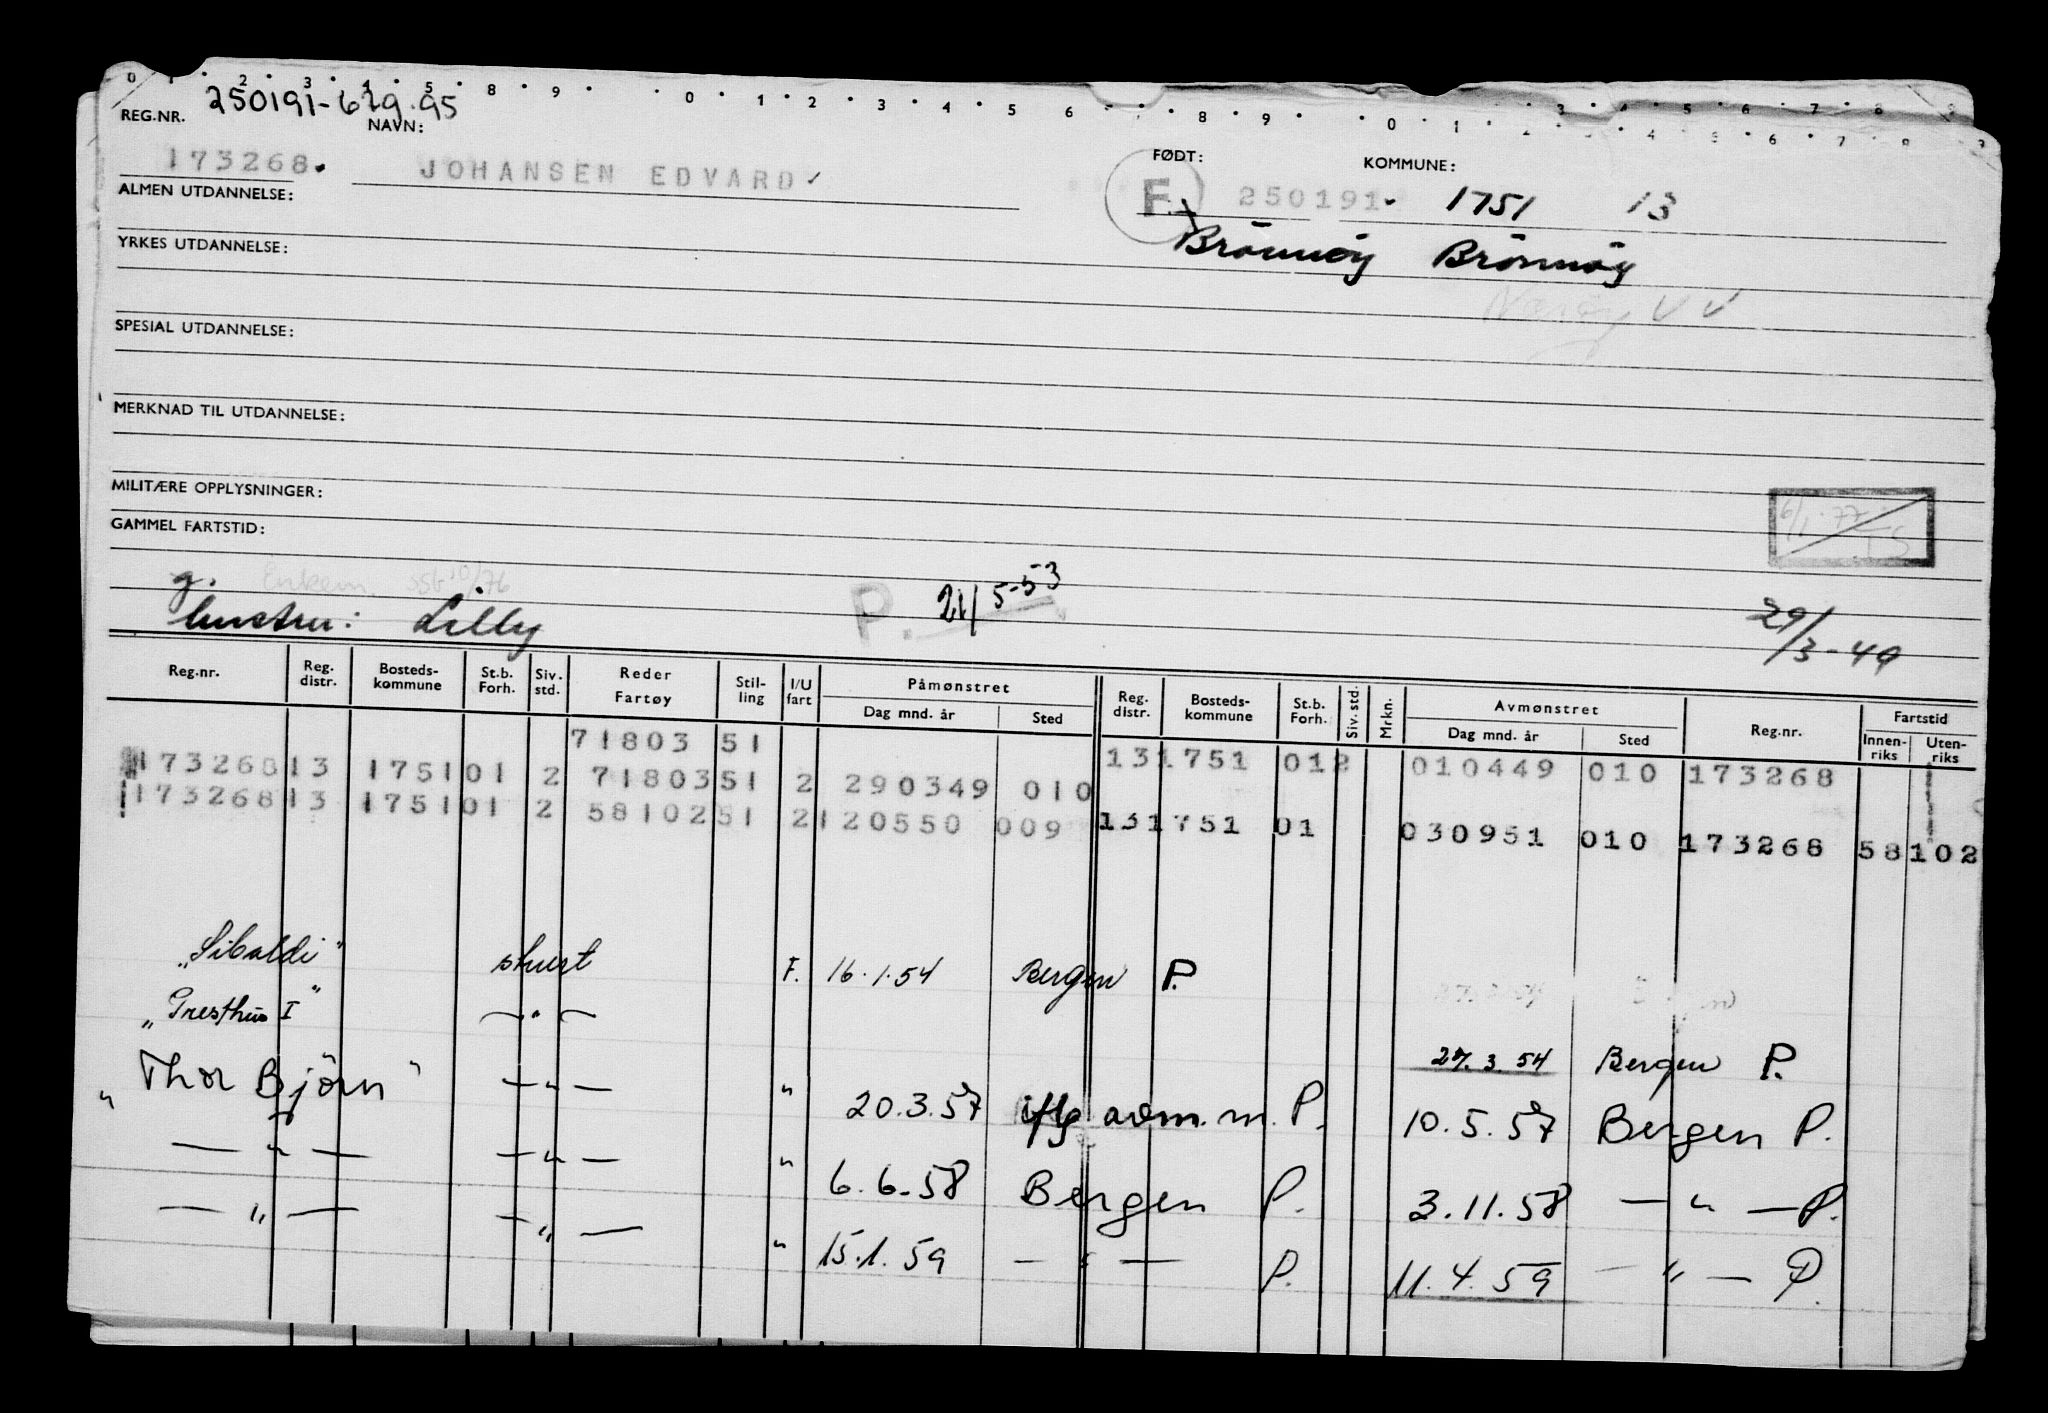 0 1 2 3 4 5 8 9 0 1 2 3 4 5 6 7 8 9 0 1 2 3 4 5 6 7 8 9
REG.NR. 250191-629.95
NAVN: FØDT: KOMMUNE:
173268. JOHANSEN EDVARD F 250191. 1751 13
ALMEN UTDANNELSE:
Brönnöy Brönnöy
YRKES UTDANNELSE:
Nærøy V V
SPESIAL UTDANNELSE:
MERKNAD TIL UTDANNELSE:
MILITÆRE OPPLYSNINGER:
6/1.77
GAMMEL FARTSTID:
g. Enkem. SSB 10/76
hustru: Lilly P. 21/5-53 29/3-49
Reg.nr. Reg. distr. Bosteds-kommune St.b. Forh. Siv. std. Reder Fartøy Stil-ling I/U fart Påmønstret Dag mnd. år Sted Reg. distr. Bosteds-kommune St.b. Forh. Siv. std. Mrkn. Avmønstret Dag mnd. år Sted Reg.nr. Fartstid Innen-riks Uten-riks
71803 51
173268 13 1751 01 2 71803 51 2 290349 010 13 1751 012 010449 010 173268
173268 13 1751 01 2 58102 51 2 120550 009 13 1751 01 030951 010 173268 58102
"Sibaldi" stuert F. 16.1.54 Bergen P.
"Gresthus I" — " —
27.3.54 Bergen P.
"Thor Björn" — " — " 20.3.57 iflg avm.m. P. 10.5.57 Bergen P.
— " — — " — " 6.6.58 Bergen P. 3.11.58 — " — P.
— " — — " — " 15.1.59 — " — P. 11.4.59 — " — P.